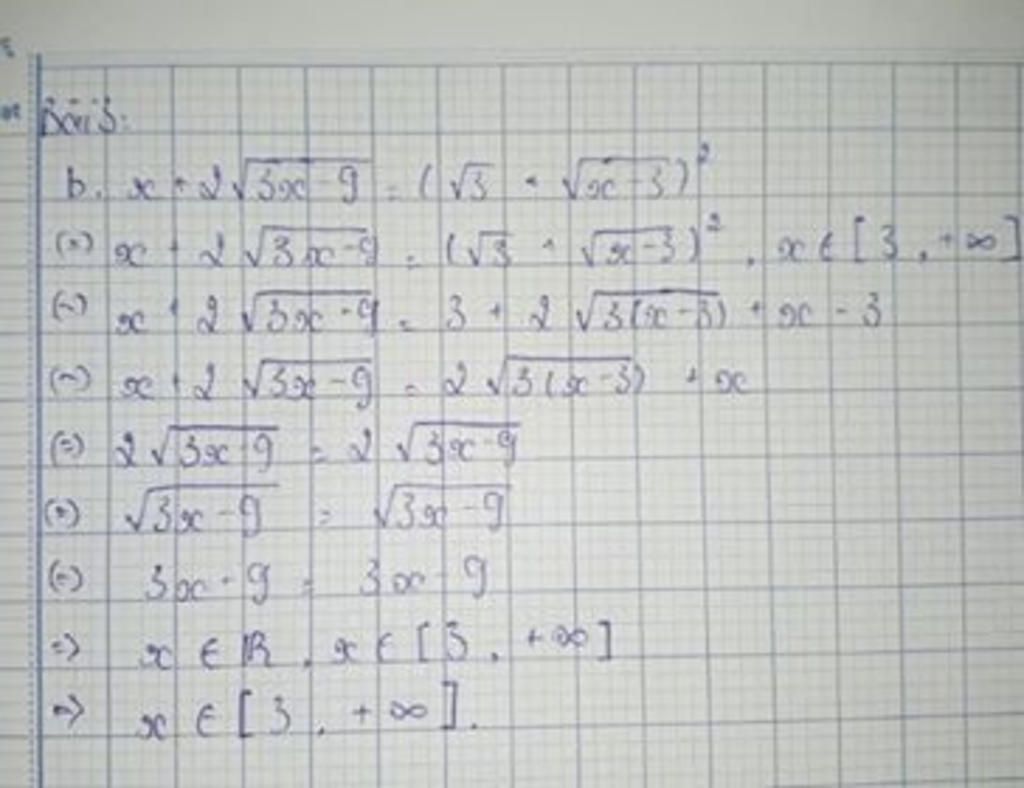 Bài 3:
b. x + 2√(3x - 9) = (√3 + √(x - 3))²
(=) x + 2√(3x - 9) = (√3 + √(x - 3))², x ∈ [3, +∞]
(=) x + 2√(3x - 9) = 3 + 2√(3(x - 3)) + x - 3
(=) x + 2√(3x - 9) = 2√(3(x - 3)) + x
(=) 2√(3x - 9) = 2√(3x - 9)
(=) √(3x - 9) = √(3x - 9)
(=) 3x - 9 = 3x - 9
=) x ∈ ℝ, x ∈ [3, +∞]
=) x ∈ [3, +∞].